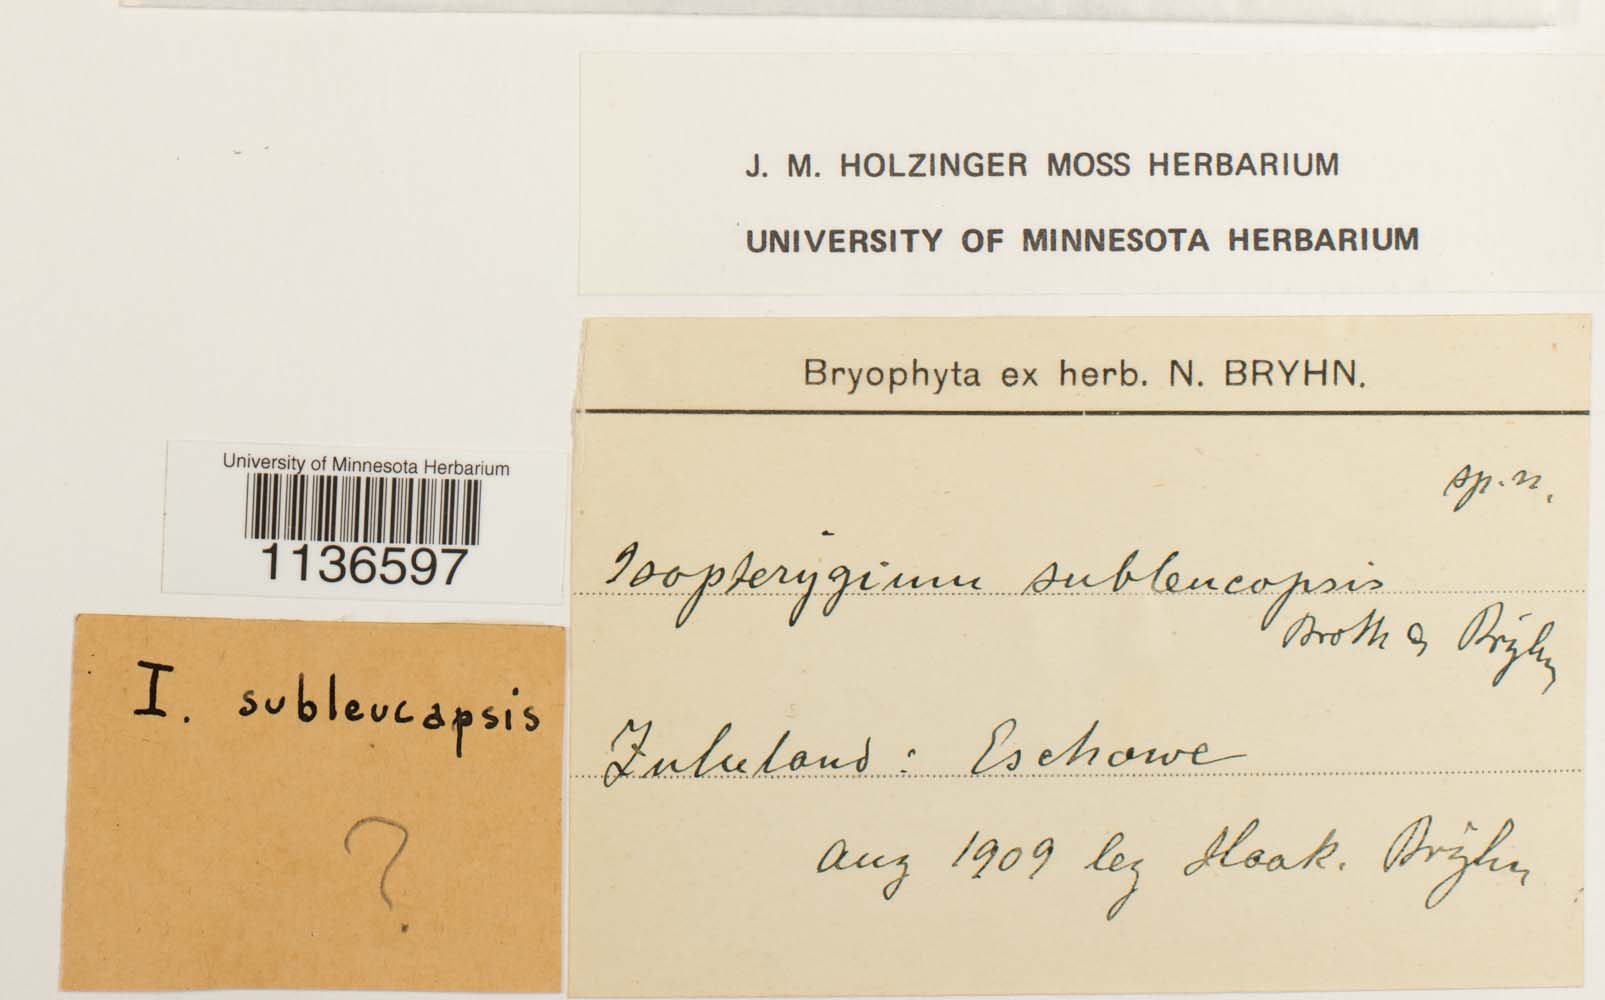 J. M. HOLZINGER MOSS HERBARIUM
UNIVERSITY OF MINNESOTA HERBARIUM
Bryophyta ex herb. N. BRYHN.
sp. n.
Isopterygium subleucopsis
Broth & Bryhn
Zululand : Eschowe
Aug 1909 leg Haak. Bryhn
University of Minnesota Herbarium
1136597
I. subleucapsis
?